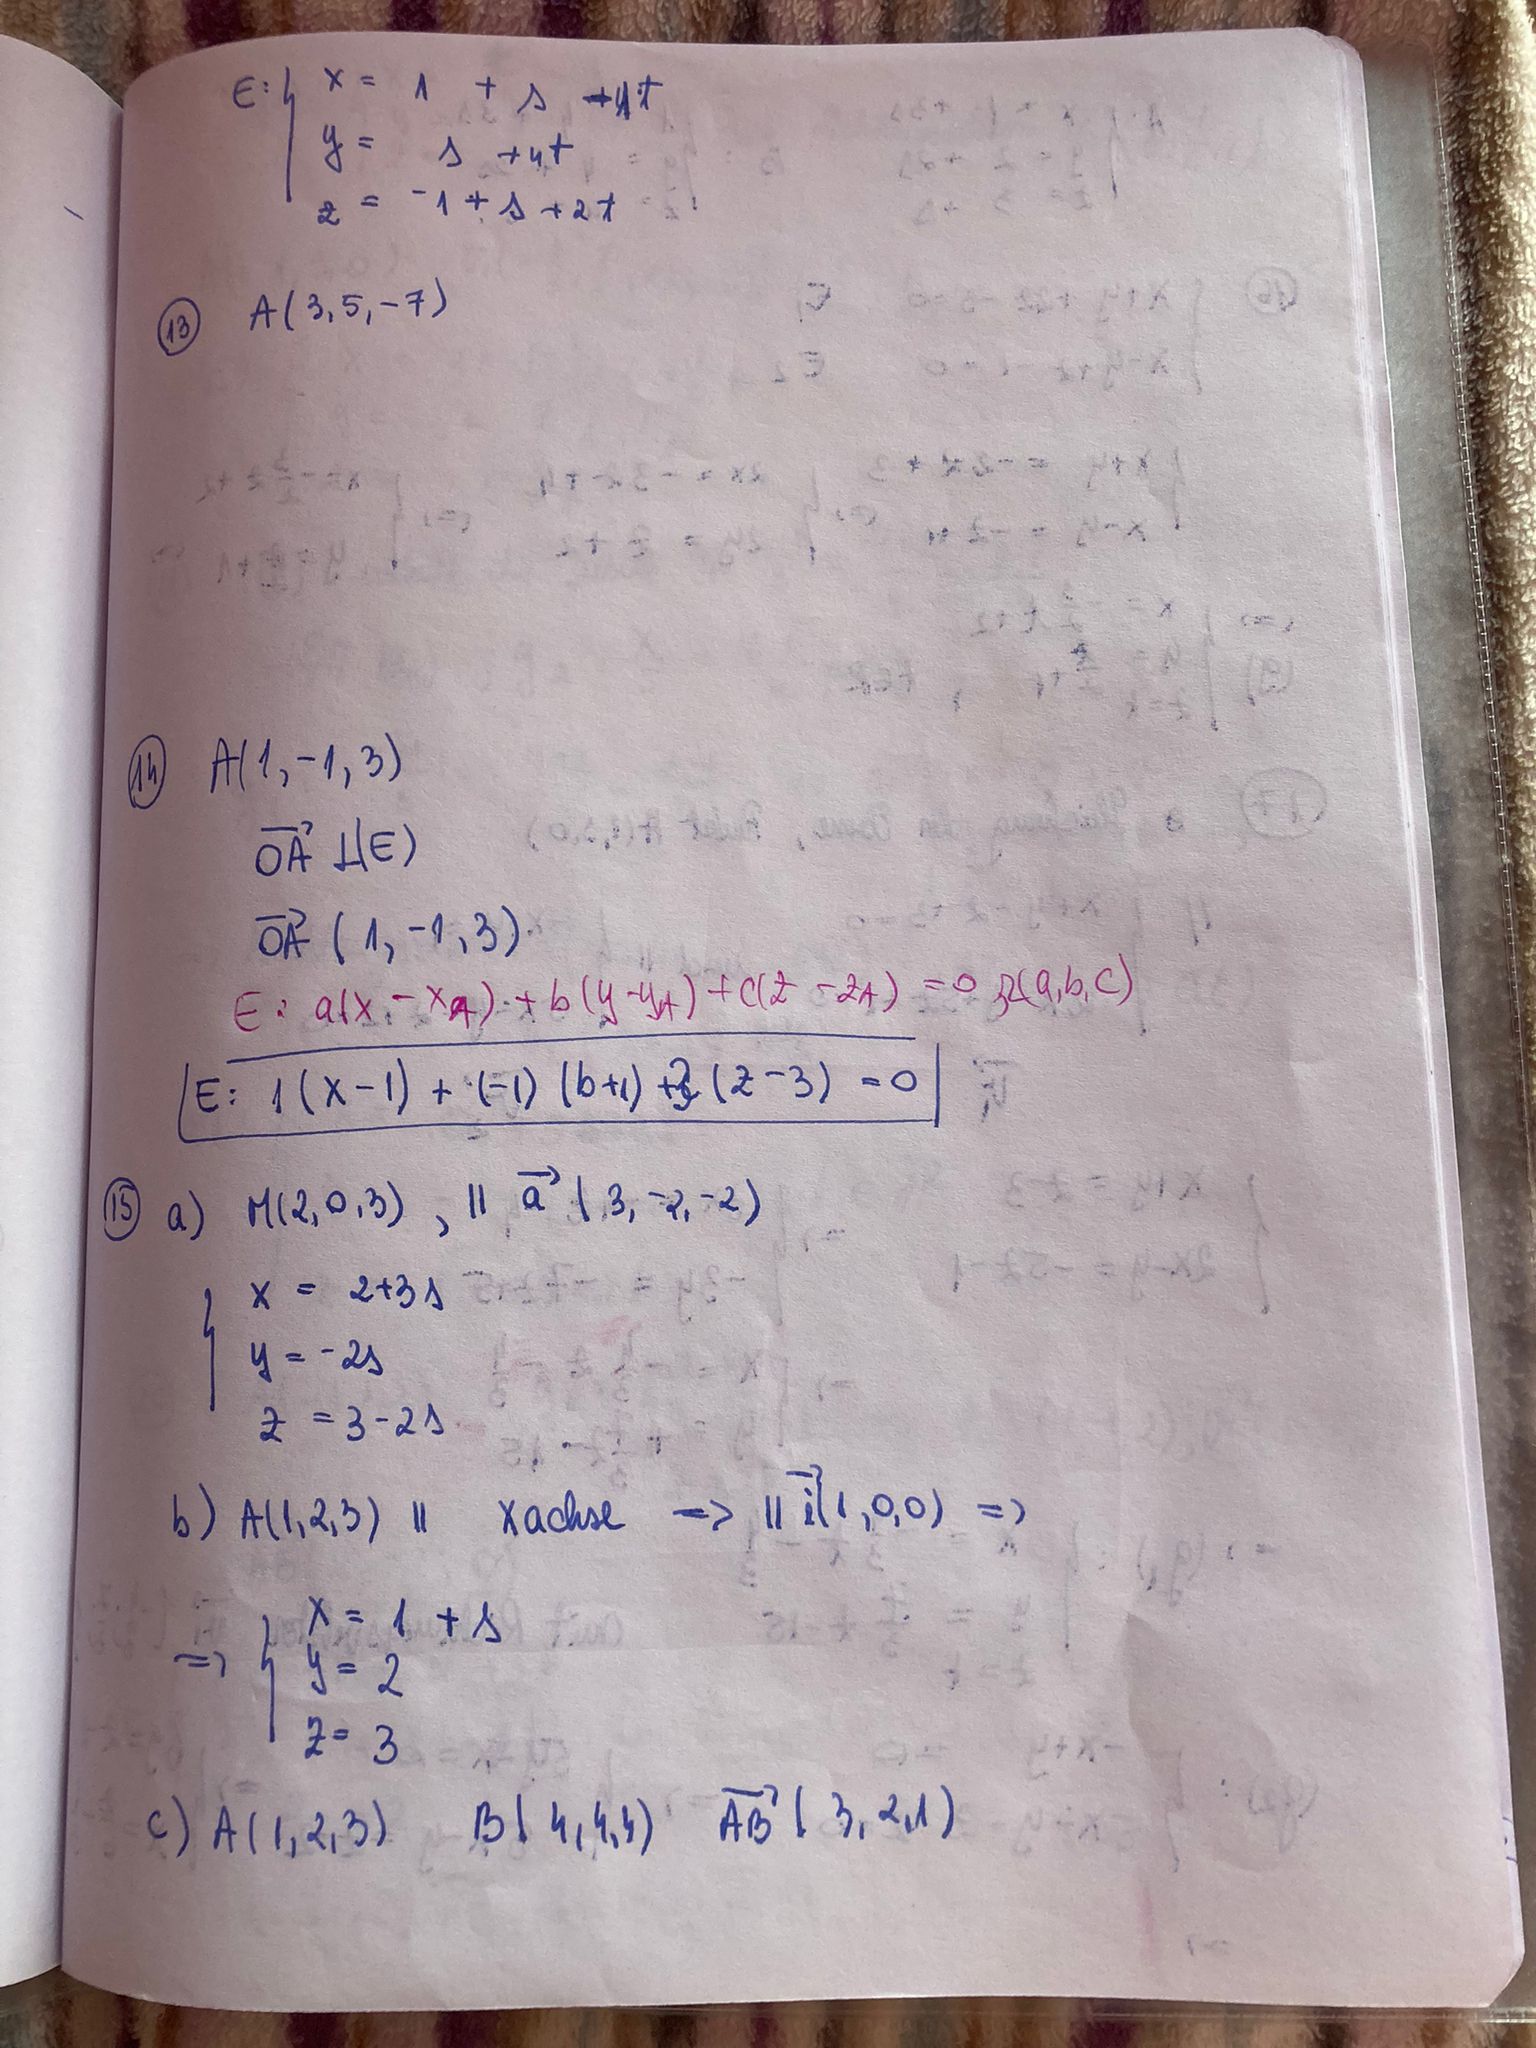 E: { x = 1 + s + 4t
y = s + 4t
z = -1 + s + 2t
(13) A(3, 5, -7)
(14) A(1, -1, 3)
OA⃗ ⊥(E)
OA⃗ (1, -1, 3)
E: a(x - xA) + b(y - yA) + c(z - zA) = 0 (a, b, c)
E: 1(x-1) + (-1)(b+1) + 3(z-3) = 0
(15) a) M(2, 0, 3), || a⃗ (3, -2, -2)
{ x = 2+3s
y = -2s
z = 3-2s
b) A(1, 2, 3) || x achse => || i⃗(1, 0, 0) =>
=> { x = 1 + s
y = 2
z = 3
c) A(1, 2, 3) B(4, 4, 4) AB⃗ (3, 2, 1)